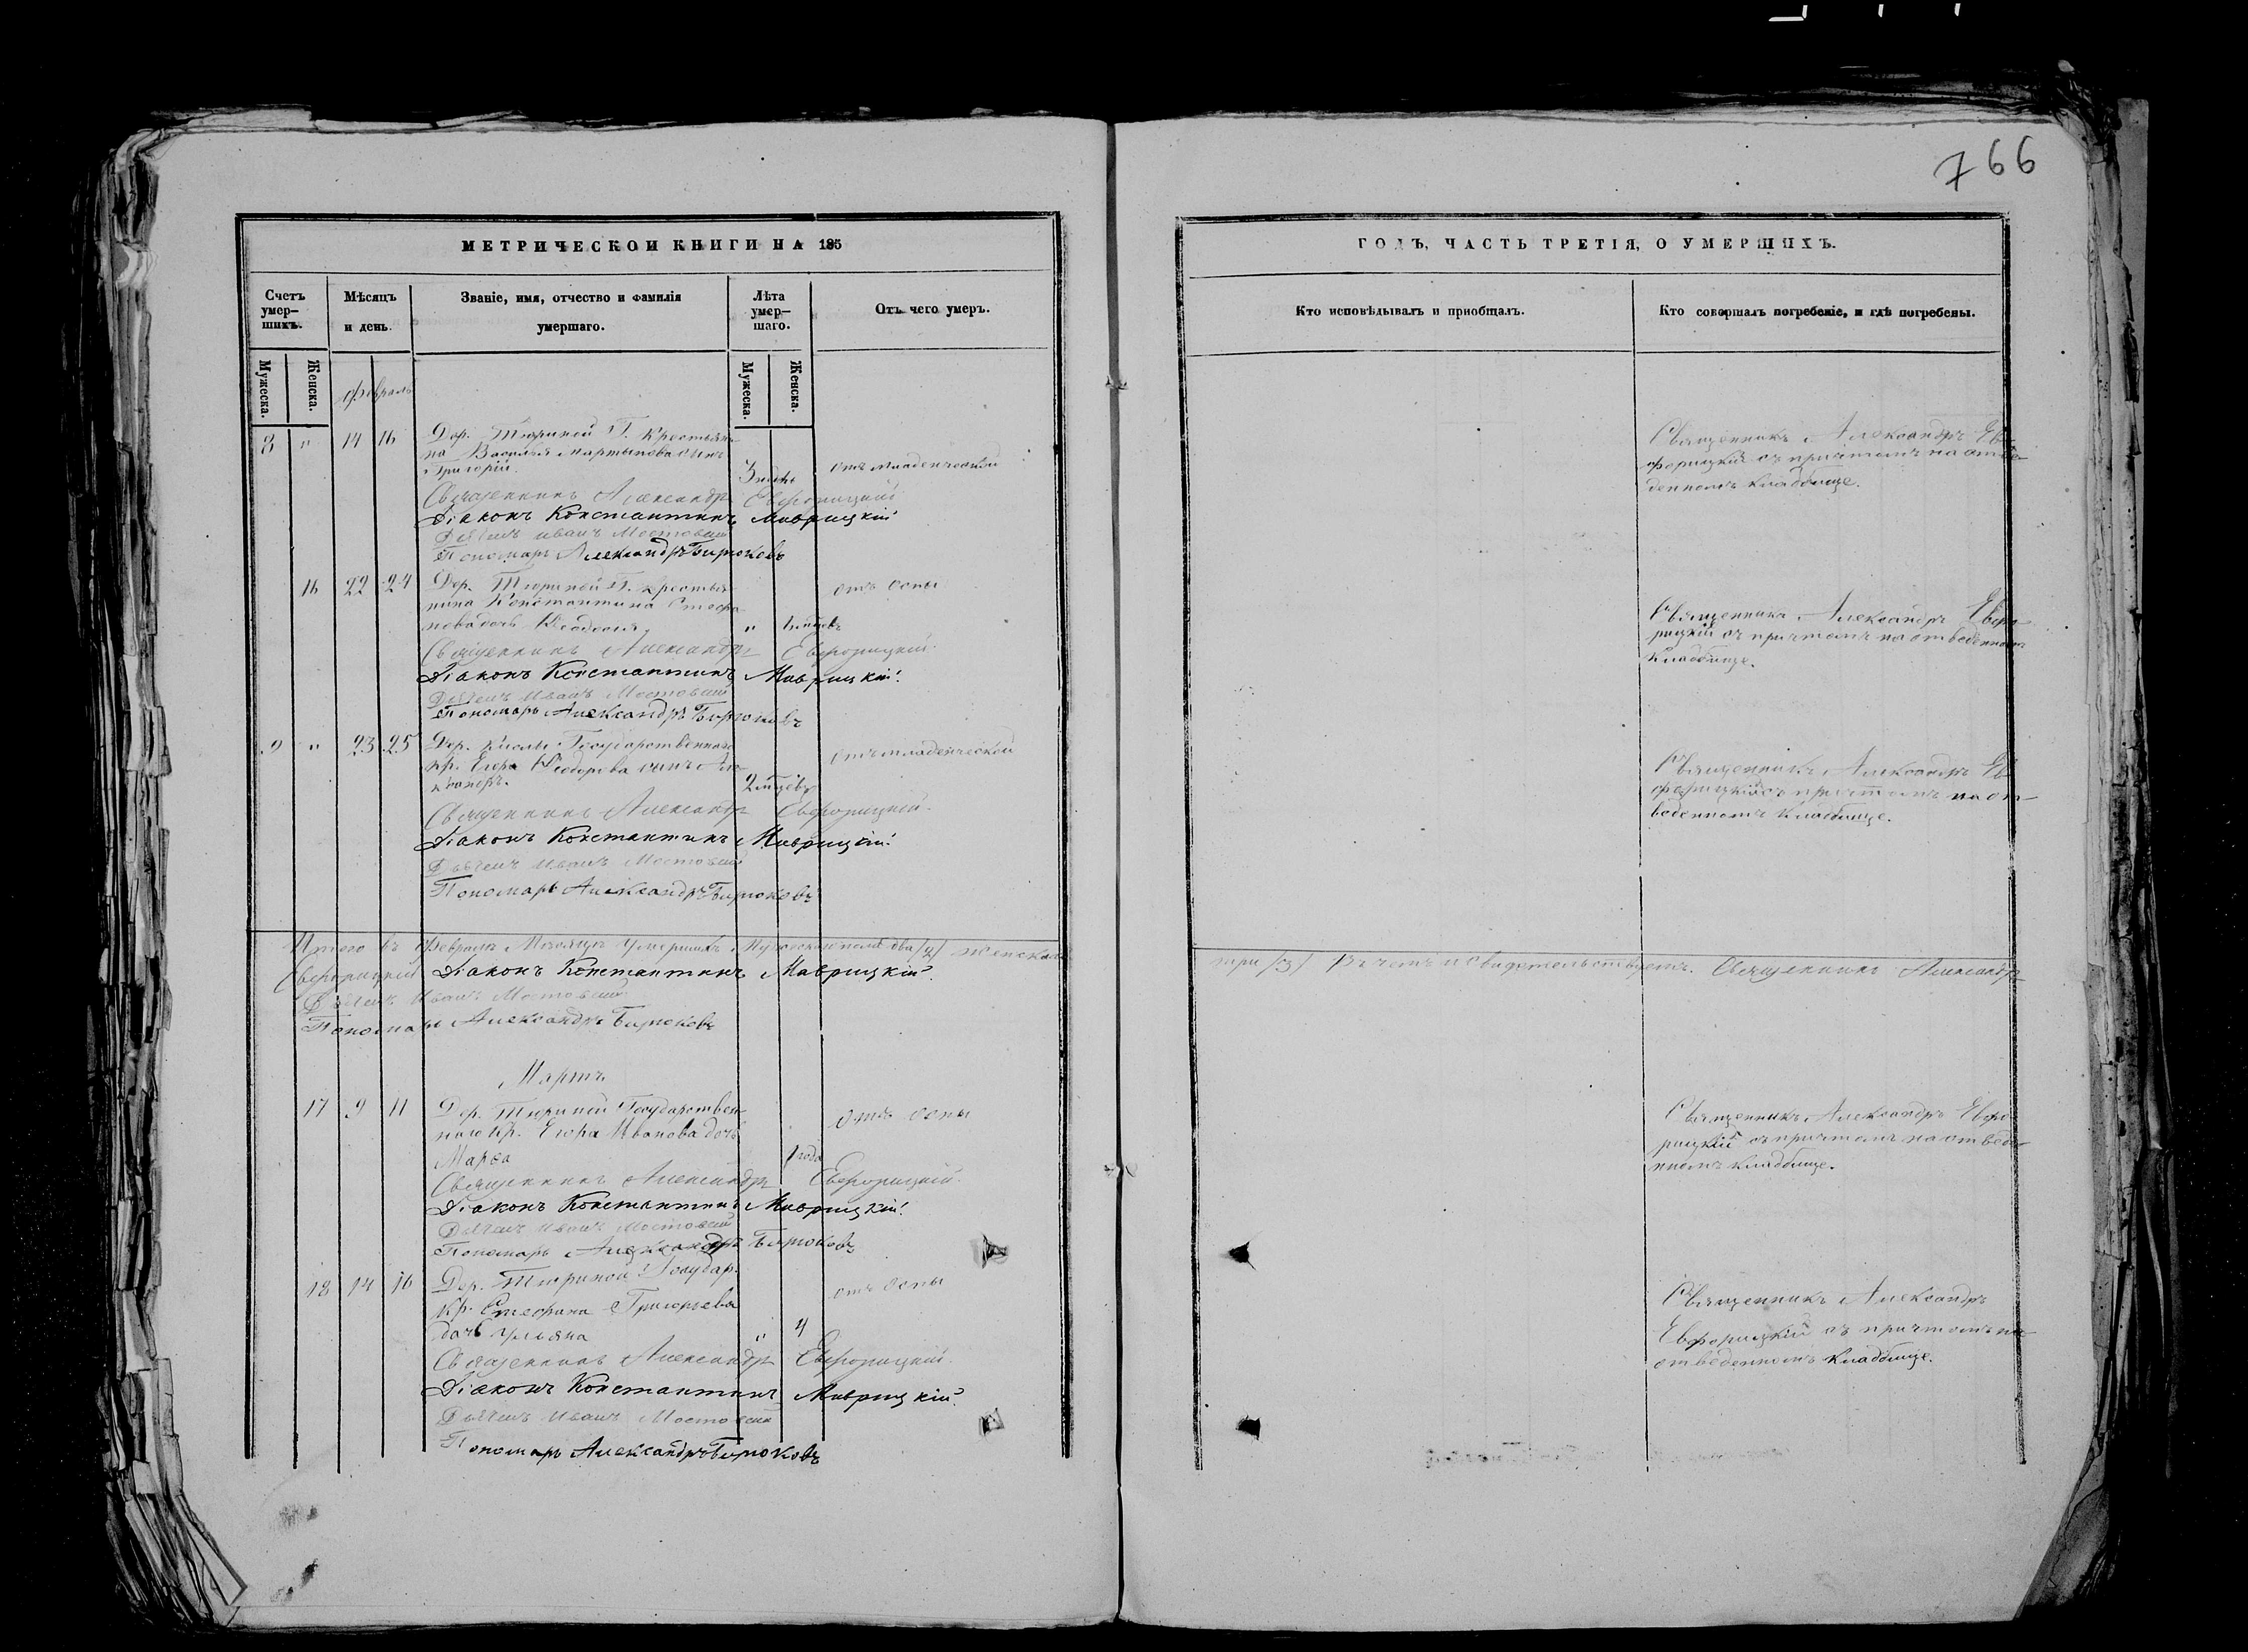 766
МЕТРИЧЕСКОИ КНИГИ НА 185
Счетъ умер-шихъ.
Мѣсяцъ и день.
Званіе, имя, отчество и фамилія умершаго.
Лѣта умер-шаго.
Отъ чего умеръ.
Мужеска.
Женска.
Мужеска.
Женска.
Февраль
8 " 14 16 Дер. Тюриной Г. крестьяни-
на Василья Мартынова сынъ
Григорій.
отъ младенческой
Священникъ Александръ Еворицкій
Діаконъ Константинъ Маврицкій
Дьячекъ Иванъ Мостовскій
Пономарь Александръ Бирюковъ
16 22 24 Дер. Тюриной Г. крестья-
нина Константина Стефа-
нова дочь Ѳеодосія. "
отъ оспы
Священникъ Александръ
Діаконъ Константинъ Маврицкій
Дьячекъ Иванъ Мостовскій
Пономарь Александръ Бирюковъ
9 " 23 25 Дер. Государственнаго
кр. Егора Ѳеодорова сынъ Але-
ксандръ.
отъ младенческой
Священникъ Александръ
Діаконъ Константинъ Маврицкій
Дьячекъ Иванъ Мостовскій
Пономарь Александръ Бирюковъ
Итого въ Февралѣ Мѣсяцѣ умершихъ Мужеска пола два /2/ женска
Діаконъ Константинъ Маврицкій
Дьячекъ Иванъ Мостовскій
Пономарь Александръ Бирюковъ
Мартъ
17 9 11 Дер. Тюриной Государствен-
наго кр. Егора Иванова дочь
Марѳа
1 года
отъ оспы
Священникъ Александръ
Діаконъ Константинъ Маврицкій
Дьячекъ Иванъ Мостовскій
Пономарь Александръ Бирюковъ
18 14 16 Дер. Тюриной Государ.
кр. Стефана Григорьева
дочь Ульяна " 4
отъ оспы
Священникъ Александръ
Діаконъ Константинъ Маврицкій
Дьячекъ Иванъ Мостовскій
Пономарь Александръ Бирюковъ
ГОДЪ, ЧАСТЬ ТРЕТІЯ, О УМЕРШИХЪ.
Кто исповѣдывалъ и пріобщалъ.
Кто совершалъ погребеніе, и гдѣ погребены.
Священникъ Александръ
съ причтомъ на отве-
денномъ кладбище.
Священникъ Александръ
съ причтомъ на отведенномъ
кладбище.
Священникъ Александръ
съ причтомъ на от-
веденномъ кладбище.
три /3/ свидетельствуемъ. Священникъ Александръ
Священникъ Александръ
съ причтомъ на отведе-
нномъ кладбище.
Священникъ Александръ
съ причтомъ на
отведенномъ кладбище.